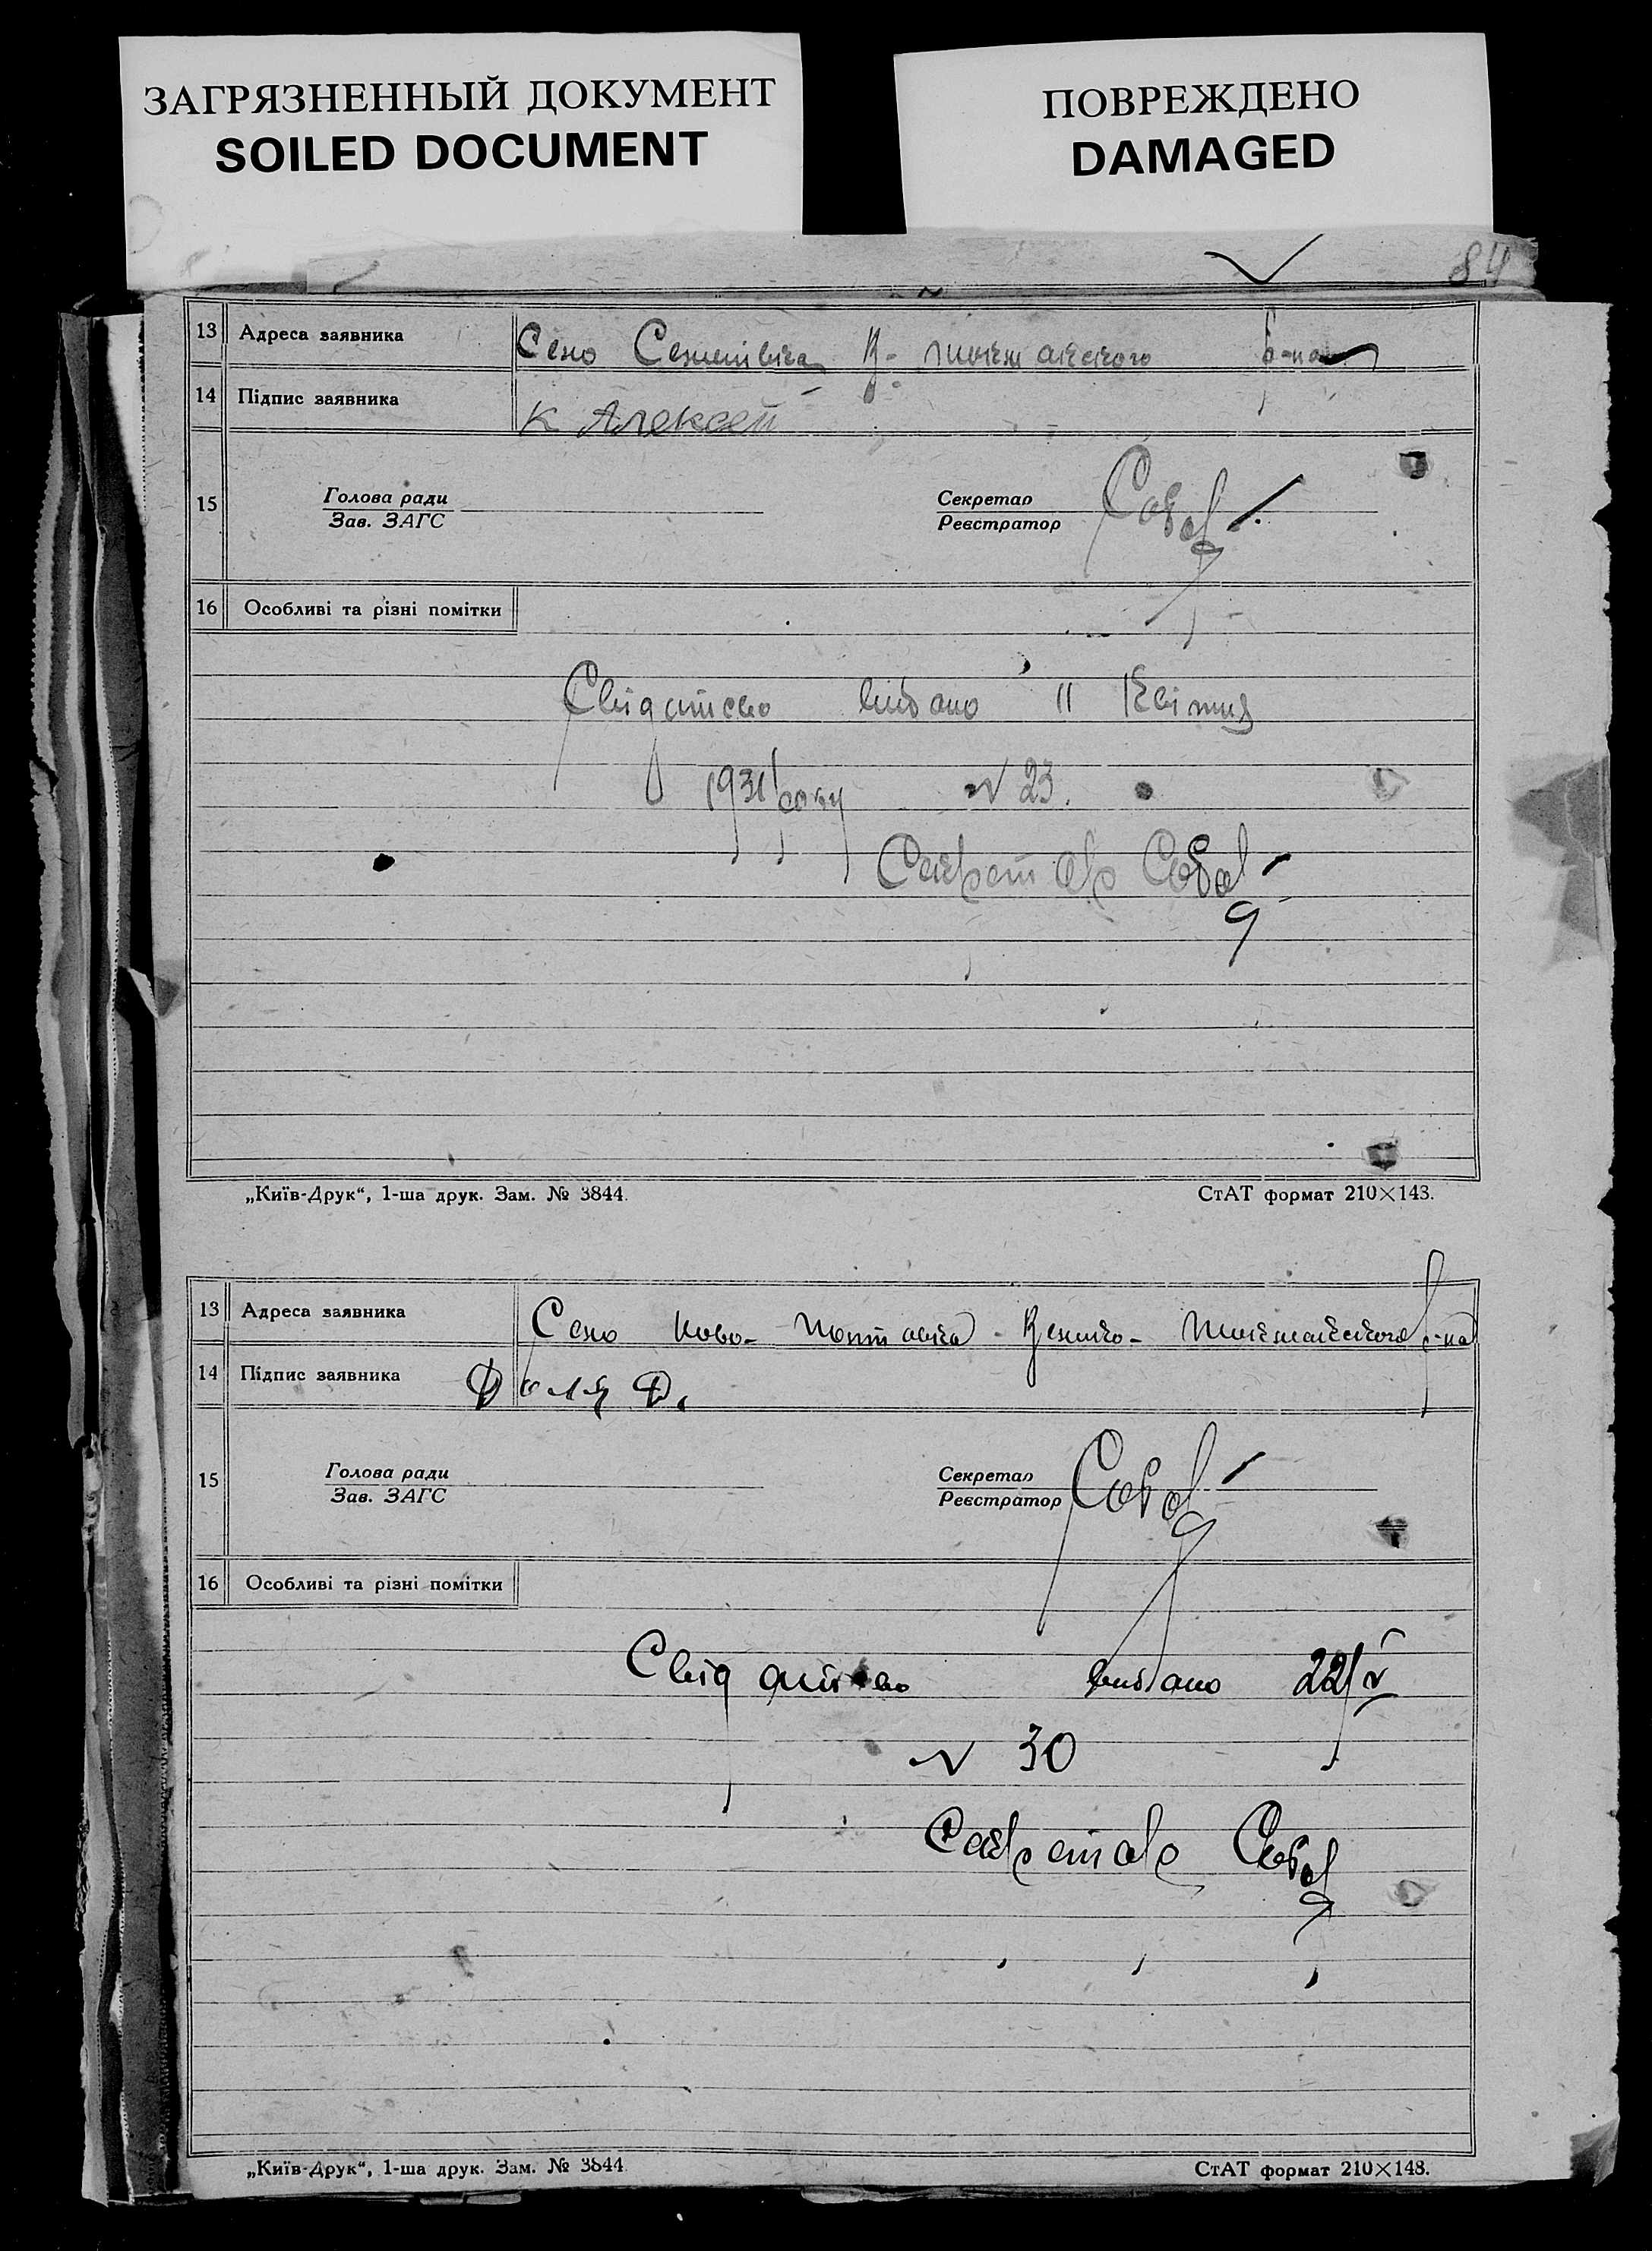 ЗАГРЯЗНЕННЫЙ ДОКУМЕНТ
SOILED DOCUMENT
ПОВРЕЖДЕНО
DAMAGED
84
13 Адреса заявника Село
14 Підпис заявника К Алексей
15 Голова ради Секретар
Зав. ЗАГС Реєстратор
16 Особливі та різні помітки
Свідоцтво видано 11 Квітня
1931 року N 23.
Секретар
„Київ-Друк“, 1-ша друк. Зам. № 3844. СтАТ формат 210×143.
13 Адреса заявника Село Ново-Полтавка
14 Підпис заявника
15 Голова ради Секретар
Зав. ЗАГС Реєстратор
16 Особливі та різні помітки
Свідоцтво видано 22/V
N 30
Секретар
„Київ-Друк“, 1-ша друк. Зам. № 3844 СтАТ формат 210×148.